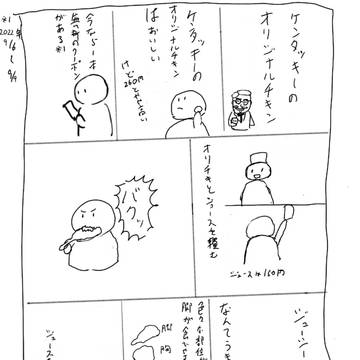 ケンタッキーの
オリジナルチキン
ケンタッキーの
オリジナルチキン
はおいしい
けど260円とややたかい
今なら1本
無料のクーポン
がある※1
※1
2022年
9/6
～
9/9
オリチキとジュースを積む
ジュースは150円
バクッ
ジューシー
なんてうま
色々な部位
脚が
脚
胸
ジュース